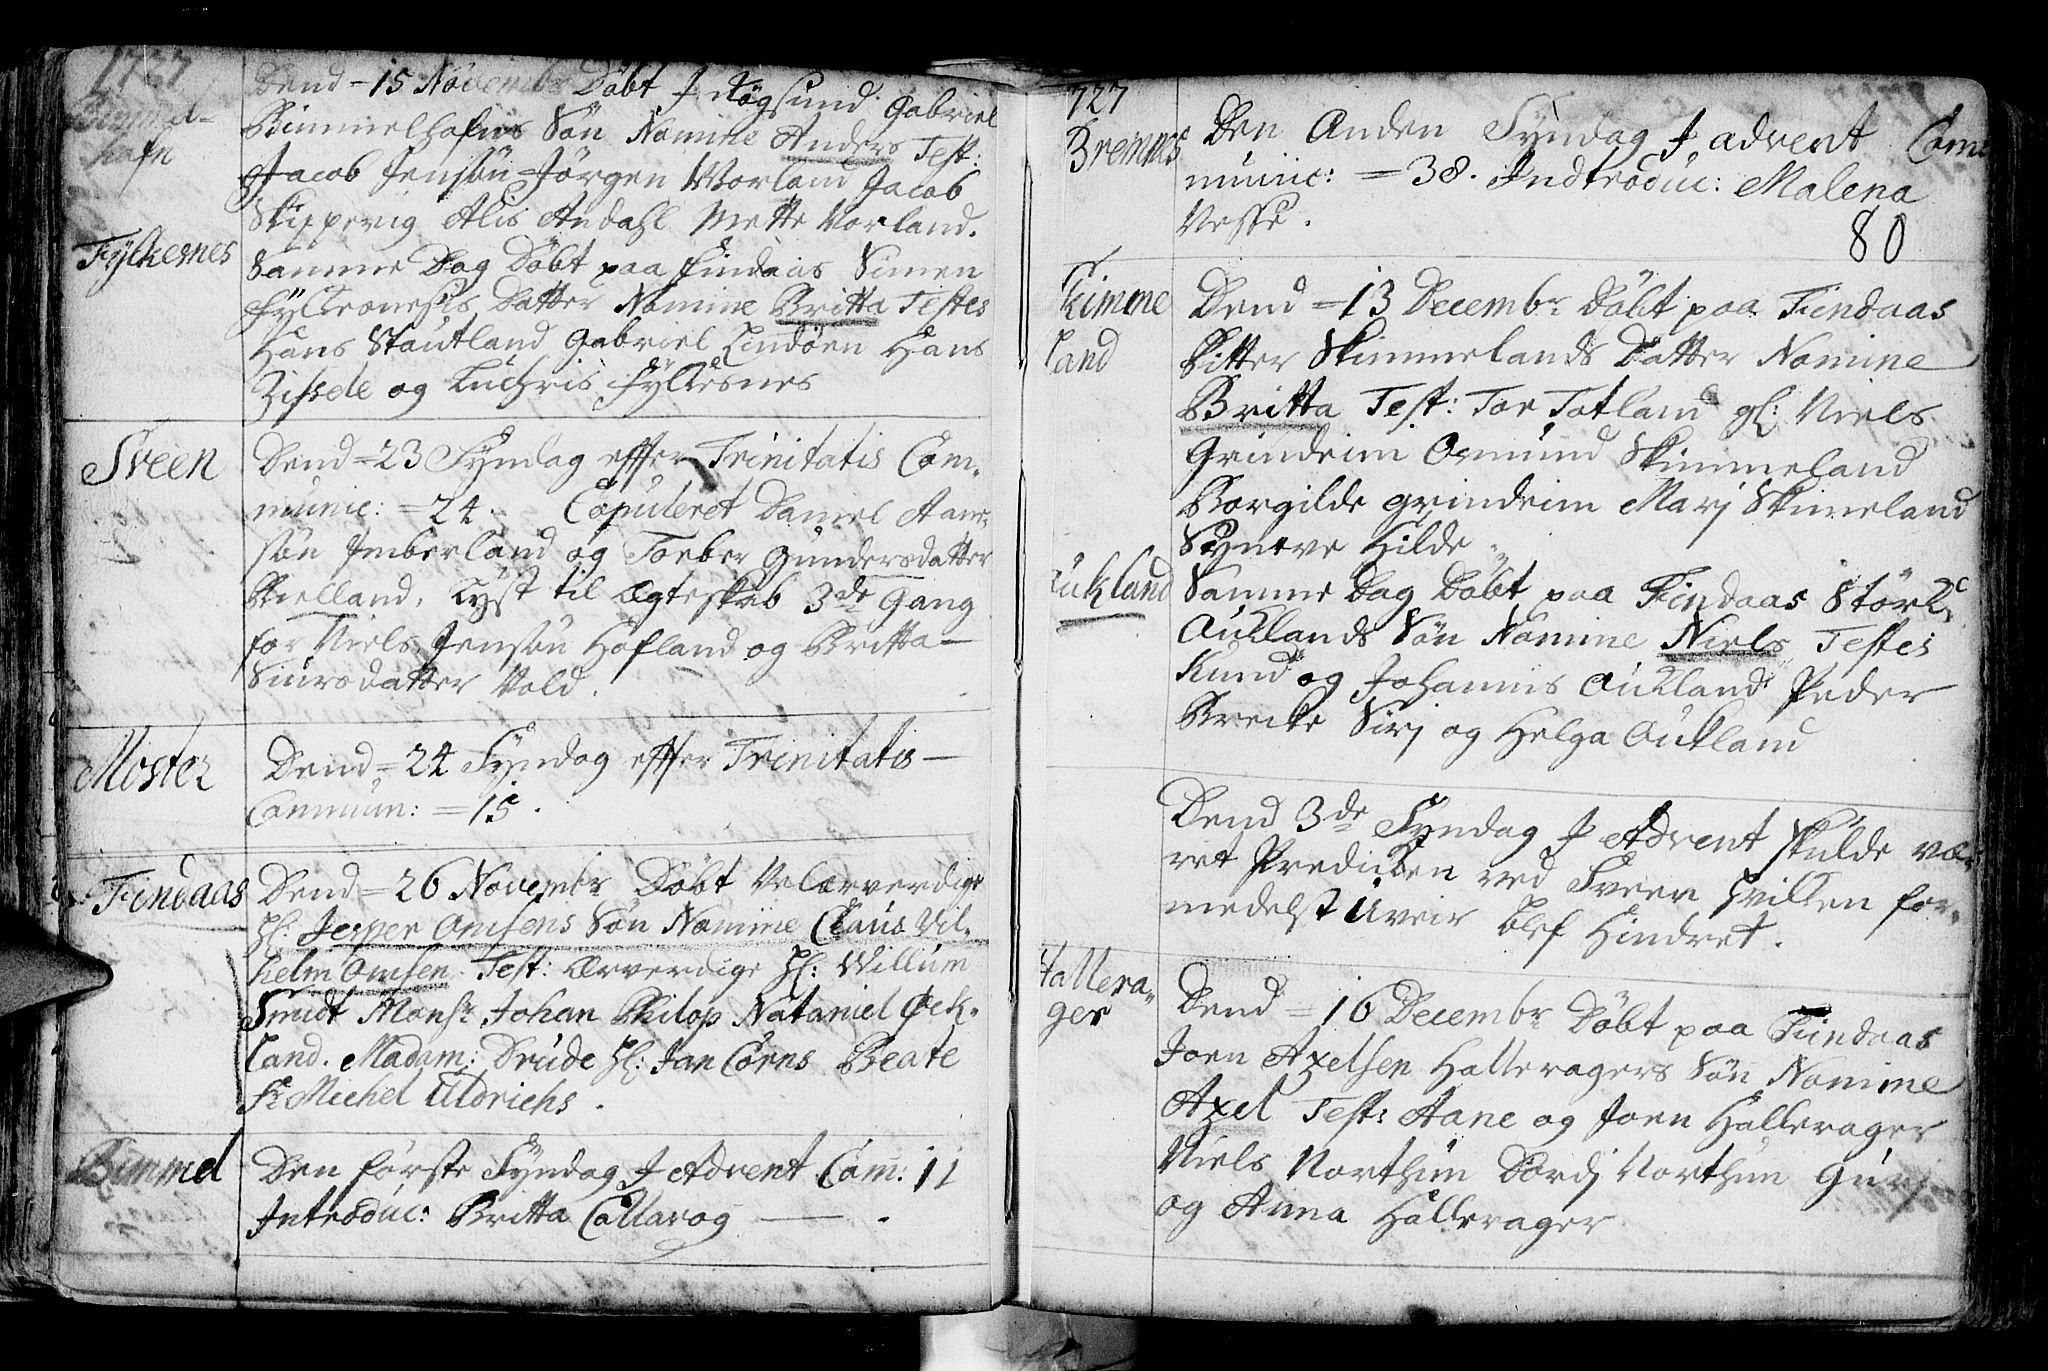 1727
Bimmel-
hafn
Dend = 15 Novembr Döbt J Røgsund Gabriel
Bimmelhafns Sön Nomine Anders Test:
Jacob Jensön Jörgen Worland Jacob
Skippevig Alis Andahl Mette Vorland.
Fylkesnes
Samme Dag Döbt paa Findaas Simen
Datter Nomine Britta Testes
Hans Stautland Gabriel Lindöen Hans
og Fylkesnes
Sveen
Dend = 23 Syndag effter Trinitatis Com-
munic: = 24. Copuleret Daniel Aane-
sön Imberland og Torber Gundersdatter
Kielland, Lyst til Ægteskab 3de Gang
for Niels Jensön Hofland og Britta
Siursdatter Vold.
Moster
Dend = 24 Syndag effter Trinitatis
Commun: = 15.
Findaas
Dend = 26 Novembr Döbt Velærverdige
H: Jesper Omsens Sön Nomine Claus Vil-
helm Omsen. Test: Ærverdige H: Willum
Smidt Monsr. Johan Philop Nataniel Øek-
land. Madam: Drude H: Jan Cörns Beate
Sr Michel Uldrichs.
Bimmel
Den förste Syndag J Advent Com: 11
Introduc: Britta Collavog
1727
Bremnes
Den Anden Syndag J advent Com-
munic: = 38. Indtroduc: Malena
Vesse.
80
Skimme
land
Dend = 13 Decembr Döbt paa Findaas
Pitter Skimmelands Datter Nomine
Britta Test: Tor Totland gl: Niels
Grindeim Osmund Skimmeland
Borgilde grindeim Marj Skimeland
Syneve Hilde
Aukland
Samme Dag Döbt paa Findaas Störk
Aucklands Sön Nomine Niels Testes
Knud og Johannis Auckland Peder
Brecke Sirj og Helga Aukland
Dend 3de Syndag J Advent skulde væ-
ret Predicken ved Sveen hvilken for-
medelst Uveir blef Hindret.
Hallera-
ger
Dend = 16 Decembr Döbt paa Findaas
Joen Axelsen Halleragers Sön Nomine
Axel Test: Aane og Joen Hallerager
Niels Northun Dordj Northun Gurj
og Anna Hallerager